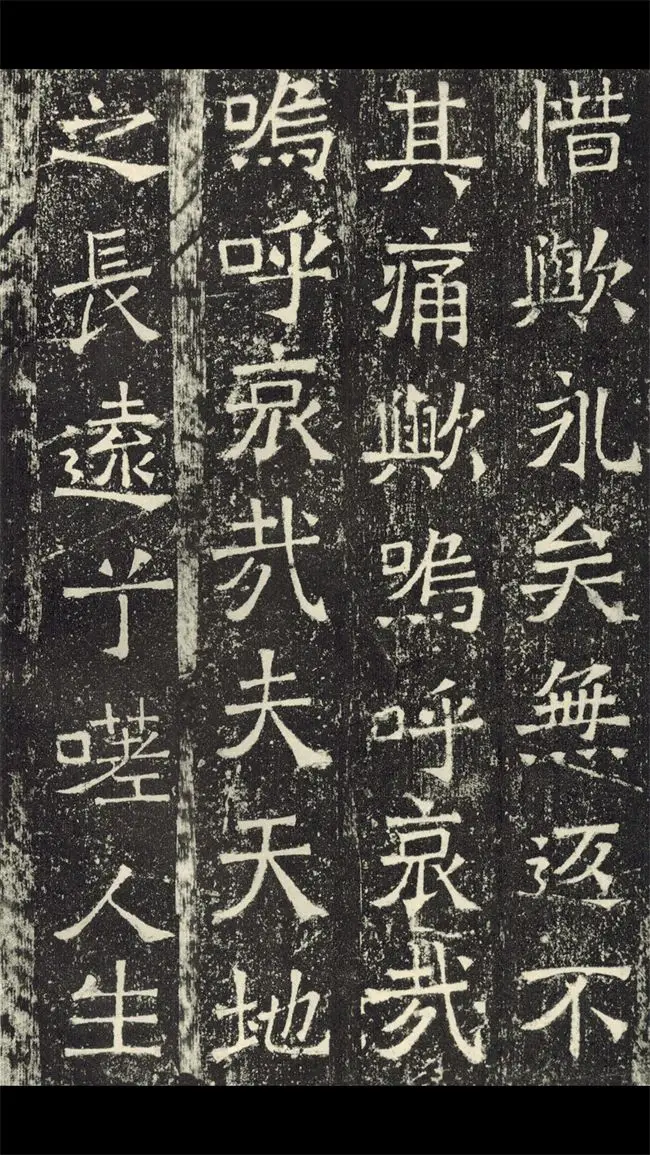 惜歟永矣無返不
其痛歟嗚呼哀哉
嗚呼哀哉夫天地
之長遠兮嗟人生